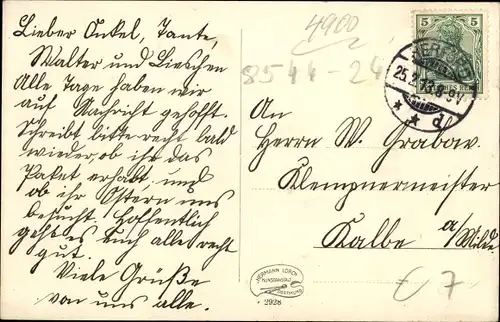 Lieber Onkel, Tante,
Walter und Lieschen
Alle Tage haben wir
auf Nachricht gehofft.
Schreibt bitte recht bald
wieder, ob ihr das
Paket erhabt, und
ob ihr Ostern uns
besucht. Hoffentlich
geht es Euch alle recht
gut.
Viele Grüße
von uns alle.
4900
8544-24
5 5
HERFORD
25.2.13.8-9V
* * d
An
Herrn W. Grabow.
Klempnermeister
Kalbe a/Milde.
HERMANN LORCH
KUNSTANSTALT
DORTMUND
2928
€ 7